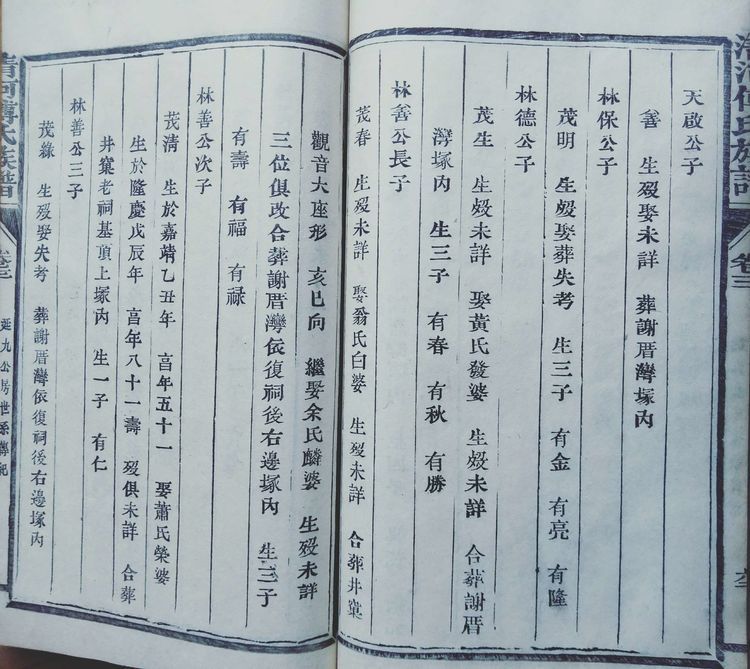 天啟公子
善 生歿娶未詳 葬謝厝灣塚內
林保公子
茂明 生歿娶葬失考 生三子 有金 有亮 有隆
林德公子
茂生 生歿未詳 娶黃氏發婆 生歿未詳 合葬謝厝
灣塚內 生三子 有春 有秋 有勝
林善公長子
茂春 生歿未詳 娶翁氏白婆 生歿未詳 合葬井窠
觀音大座形 亥巳向 繼娶余氏麟婆 生歿未詳
三位俱改合葬謝厝灣依復祠後右邊塚內 生三子
有壽 有福 有禄
林善公次子
茂清 生於嘉靖乙丑年 享年五十一 娶蕭氏榮婆
生於隆慶戊辰年 享年八十一壽 歿俱未詳 合葬
井窠老祠基頂上塚內 生一子 有仁
林善公三子
茂綠 生歿娶失考 葬謝厝灣依復祠後右邊塚內
清河傅氏族譜 卷三 延九公房世系